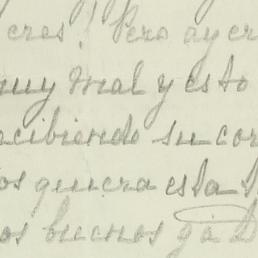 cres! Pero ayer
muy mal y esto
cibiendo su cor
os quiera esta
os buenos ya D